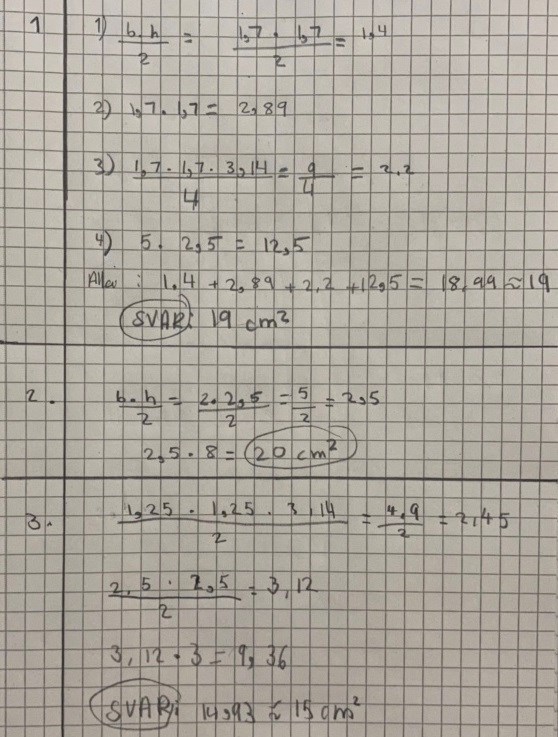 1
1) b.h/2 = 1,7 . 1,7/2 = 1,4
2) 1,7 . 1,7 = 2,89
3) 1,7 . 1,7 . 3,14/4 = 9/4 = 2.2
4) 5 . 2,5 = 12,5
: 1.4 + 2,89 + 2,2 + 12,5 = 18,99 ≈ 19
SVAR: 19 cm²
2.
b.h/2 = 2.2,5/2 = 5/2 = 2,5
2,5 . 8 = 20 cm²
3.
1,25 . 1,25 . 3,14/2 = 4,9/2 = 2,45
2,5 . 2,5/2 = 3,12
3,12 . 3 = 9,36
SVAR: 14,93 ≈ 15 cm²